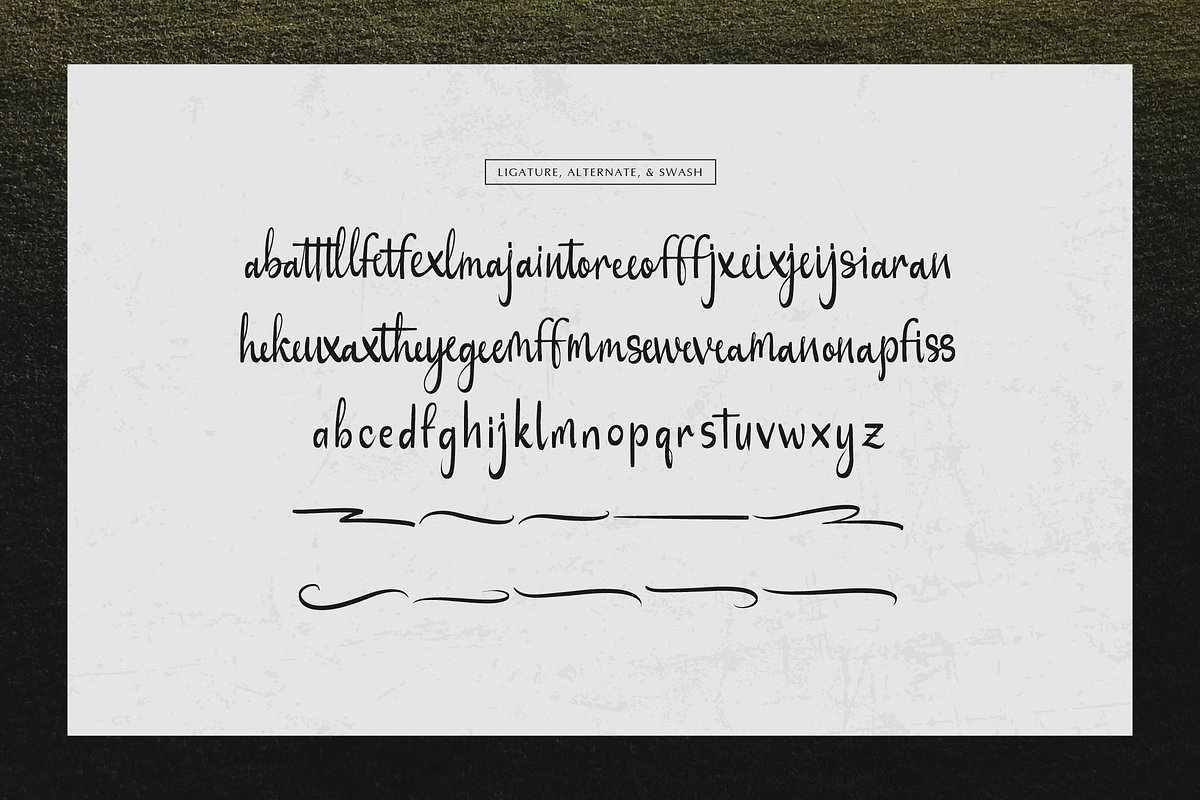 LIGATURE, ALTERNATE, & SWASH
abattttllfetfexlmajaintoreeofffjxeixjeijsiaran
hekeuxaxtheyegeemffmmsewreveamanonapfiss
abcedfghijklmnopqrstuvwxyz